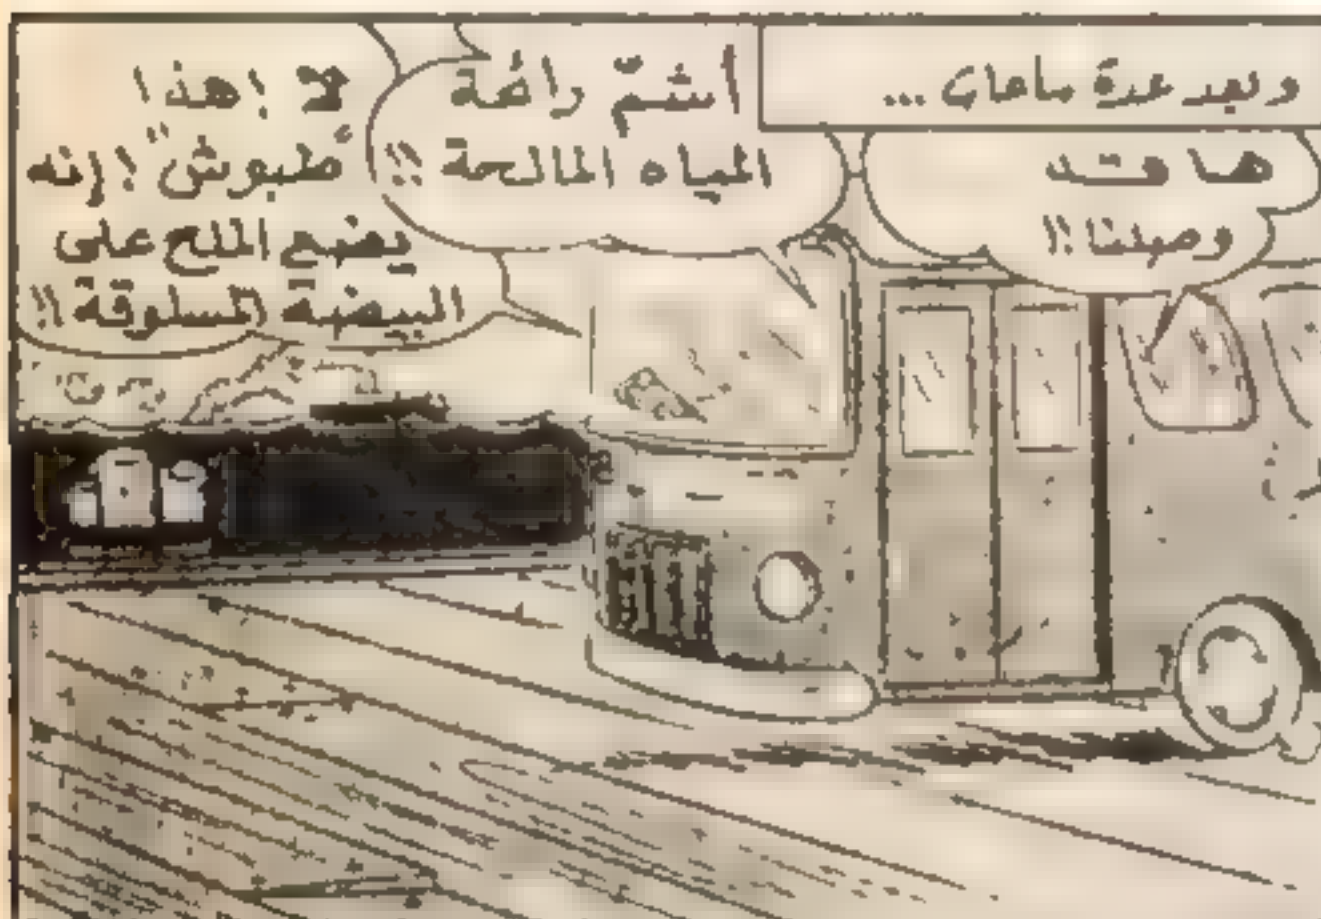 وبعد عدة ساعات ...
ها قد
وصلنا !!
أشمّ رائحة
المياه المالحة !!
لا ! هذا
"طبوش" ! إنه
يضع الملح على
البيضة المسلوقة !!